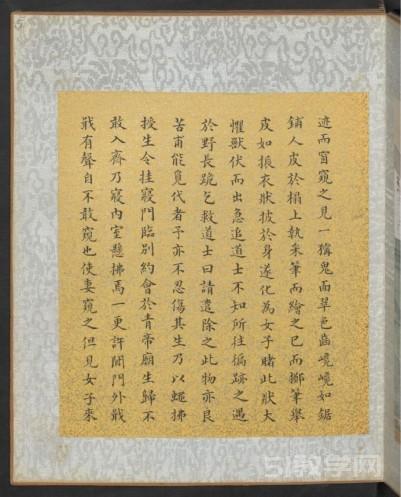 迹而窗窺之見一獰鬼面翠色齒巉巉如鋸
鋪人皮於榻上執采筆而繪之已而擲筆舉
皮如振衣狀披於身遂化為女子睹此狀大
懼獸伏而出急追道士不知所往徧跡之遇
於野長跪乞救道士曰請遣除之此物亦良
苦甫能覓代者予亦不忍傷其生乃以蠅拂
授生令挂寢門臨別約會於青帝廟生歸不
敢入齋乃寢內室懸拂焉一更許聞門外戢
戢有聲自不敢窺也使妻窺之但見女子來
5
51教学网